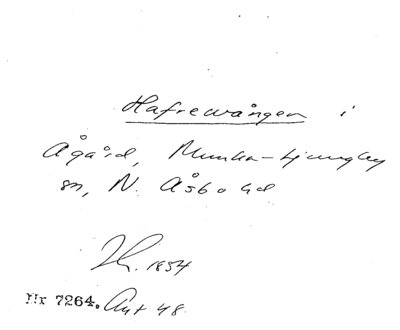 Hafrewången i
Ågård, Munka-Ljungby
sn, N. Åsbo hd
1854
Nr 7264. Avt 48